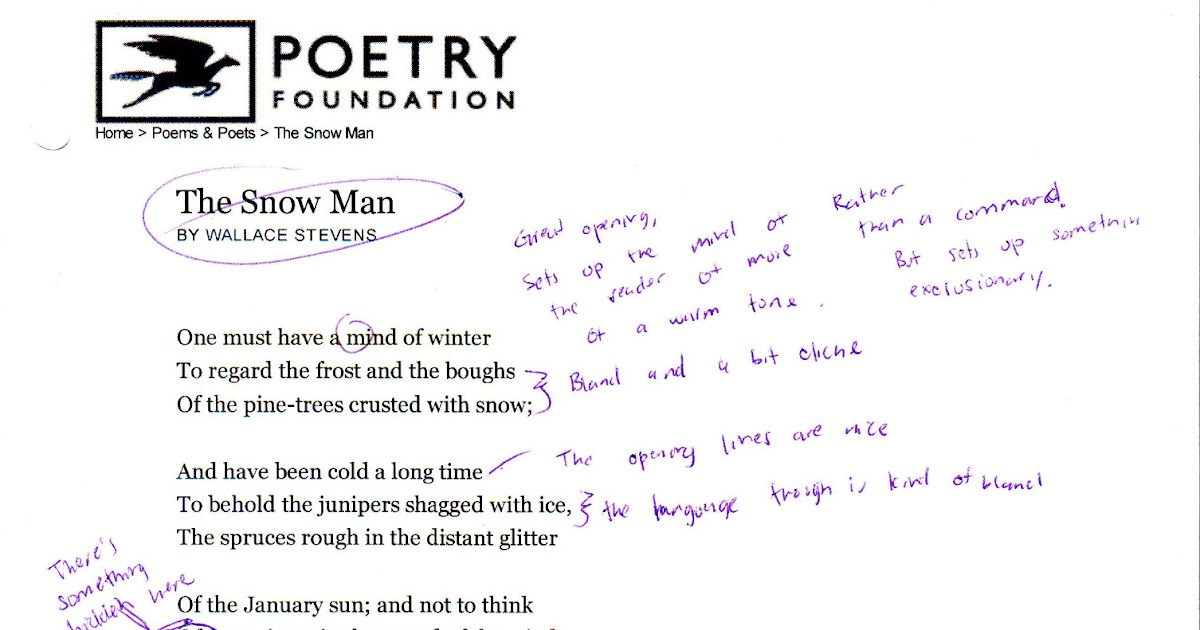 POETRY
FOUNDATION
Home > Poems & Poets > The Snow Man
The Snow Man
BY WALLACE STEVENS
Great opening,
Sets up the mind of
the reader of more
of a warm tone.
Rather
than a command.
But sets up somethin
exclusionary.
One must have a mind of winter
To regard the frost and the boughs
Of the pine-trees crusted with snow;
Bland and a bit cliche
And have been cold a long time
The opening lines are nice
To behold the junipers shagged with ice,
the language though is kind of bland
The spruces rough in the distant glitter
There's
something
hidden here
Of the January sun; and not to think